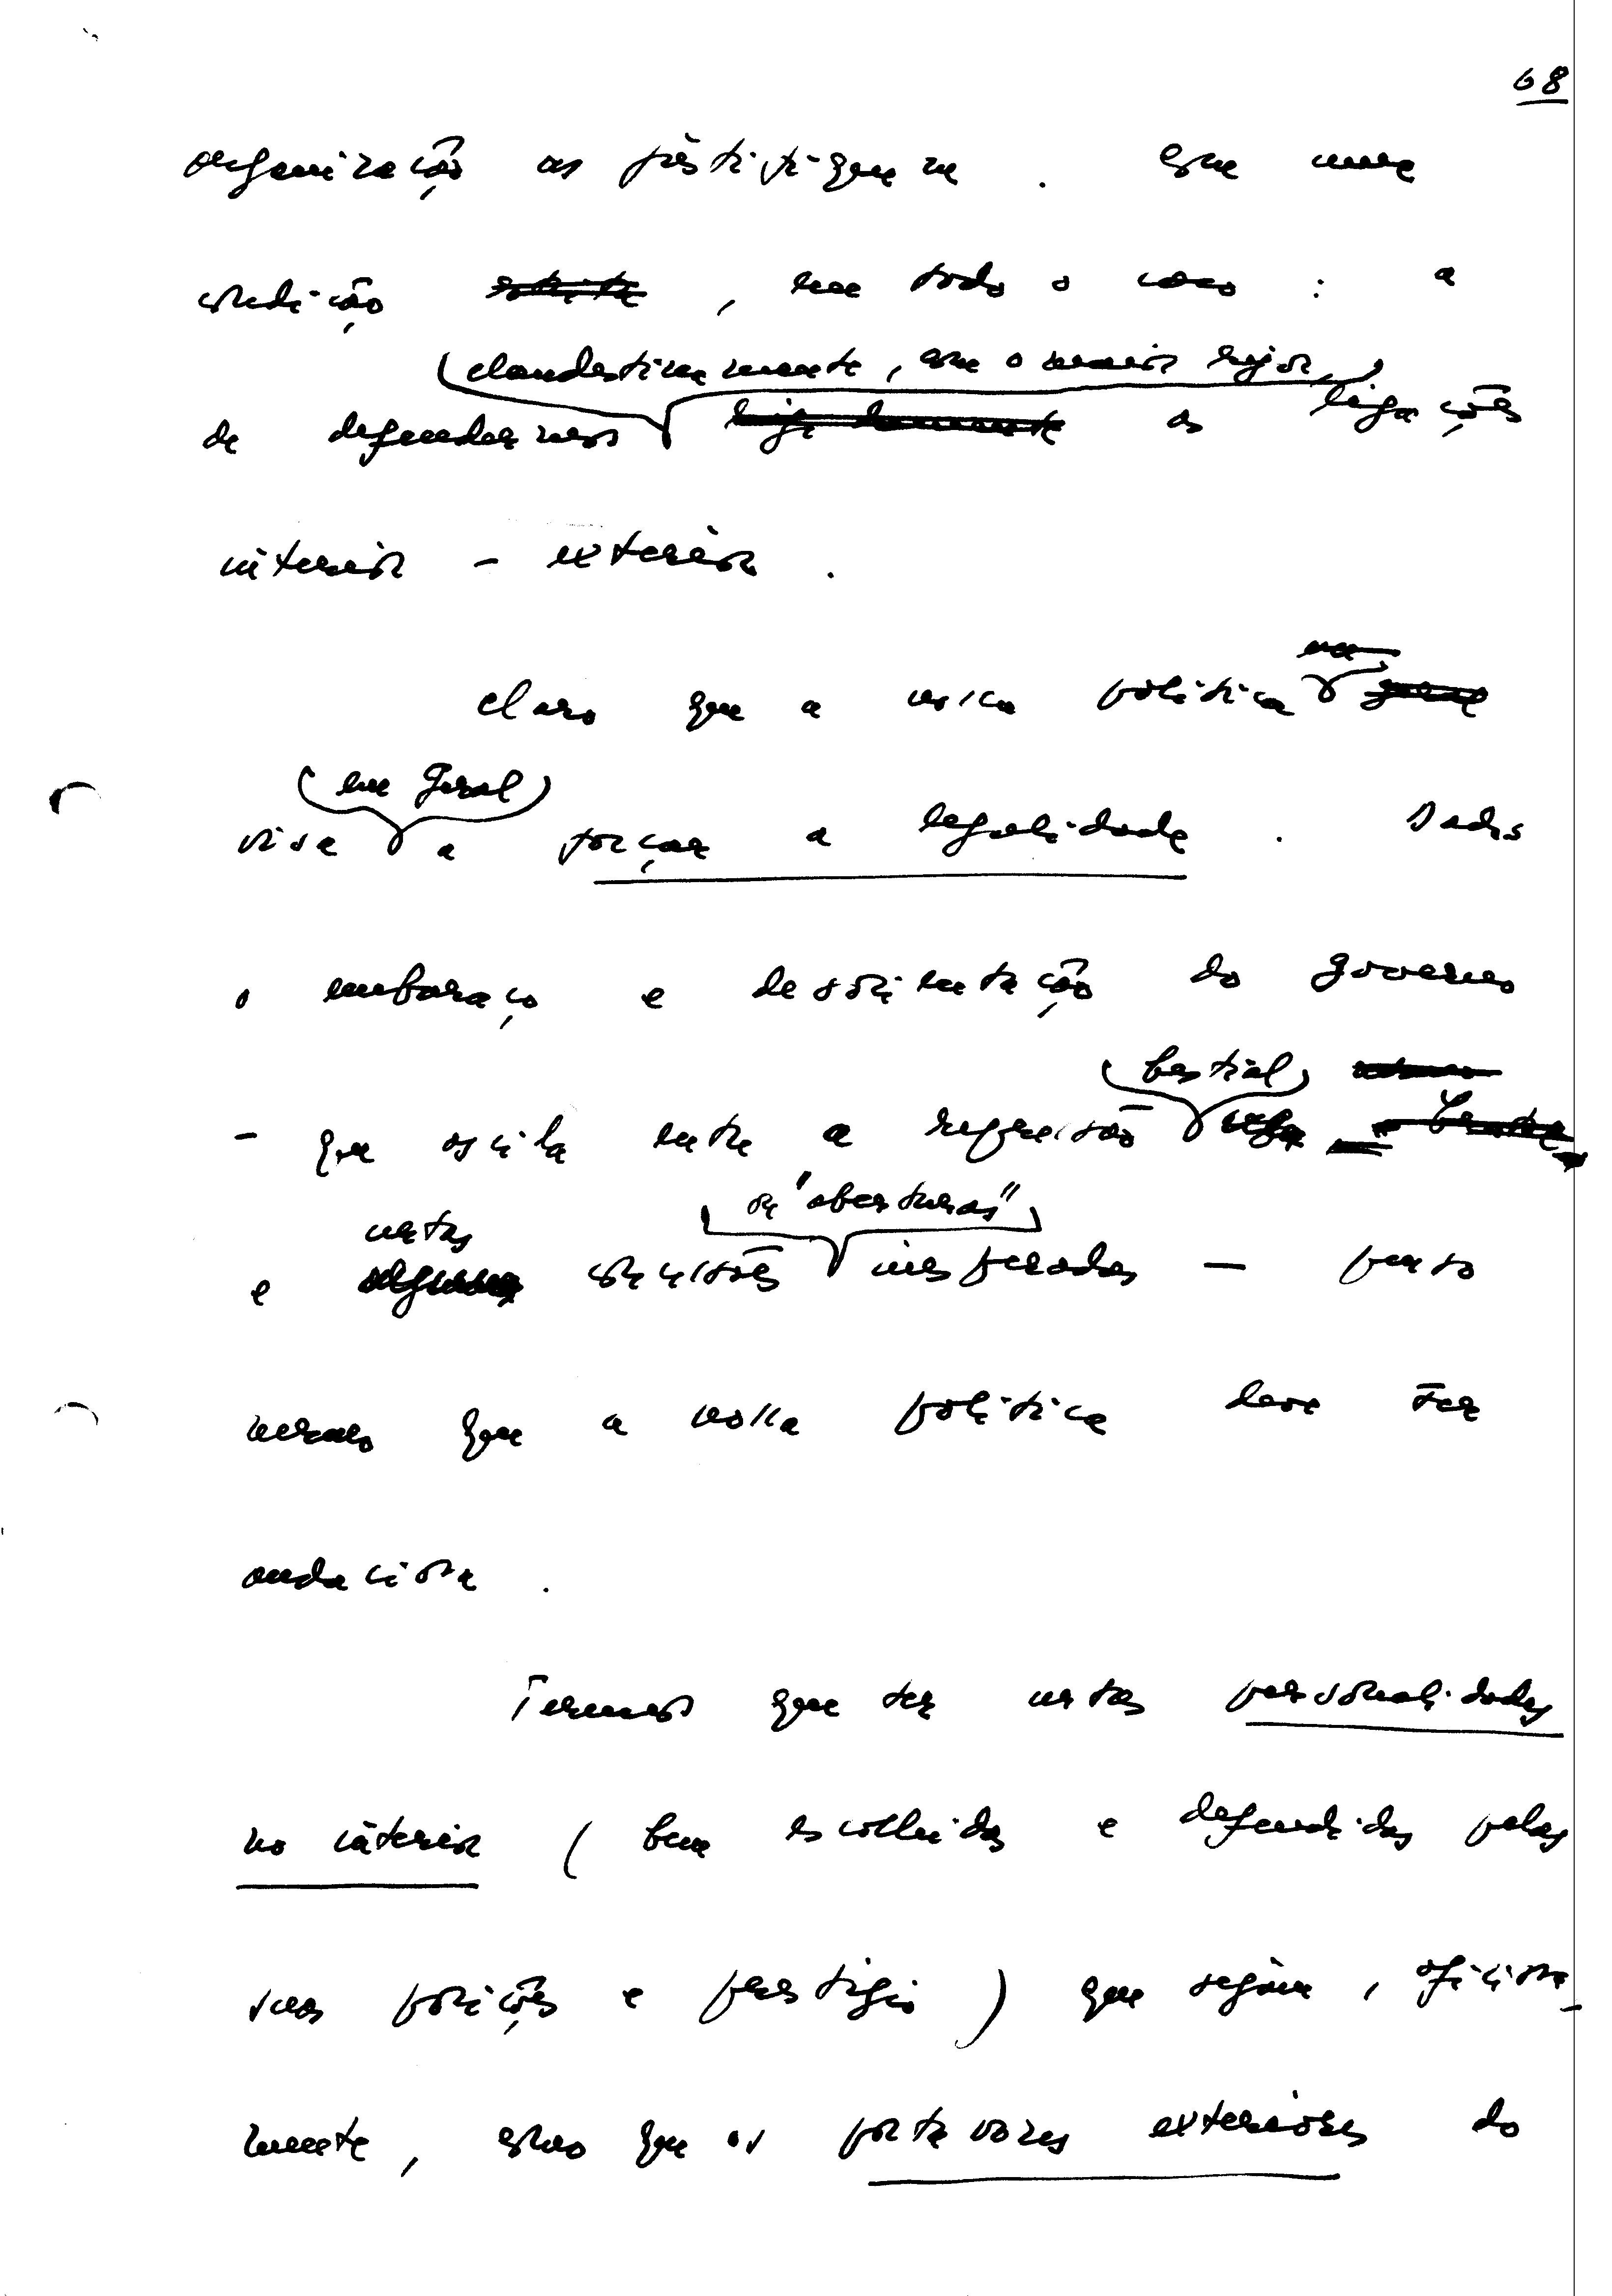 68
organização os justifiquem. Com uma
condição, em todo o caso: a
(clandestinamente, com o maior rigor,)
de defendermos as ligações
interior - exterior.
Claro que a nossa política
(em geral)
visa a forçar a legalidade. Dado
o embaraço e desorientação do governo
(bestial)
- que oscila entre a repressão
certas ou "aberturas"
e concessões inesperadas — penso
mesmo que a nossa política deve ser
audaciosa.
Teremos que ter certas personalidades
no interior (bem escolhidas e defendidas pelas
suas posições e prestígio) que sejam, oficiosa-
mente, como que os porta vozes exteriores do